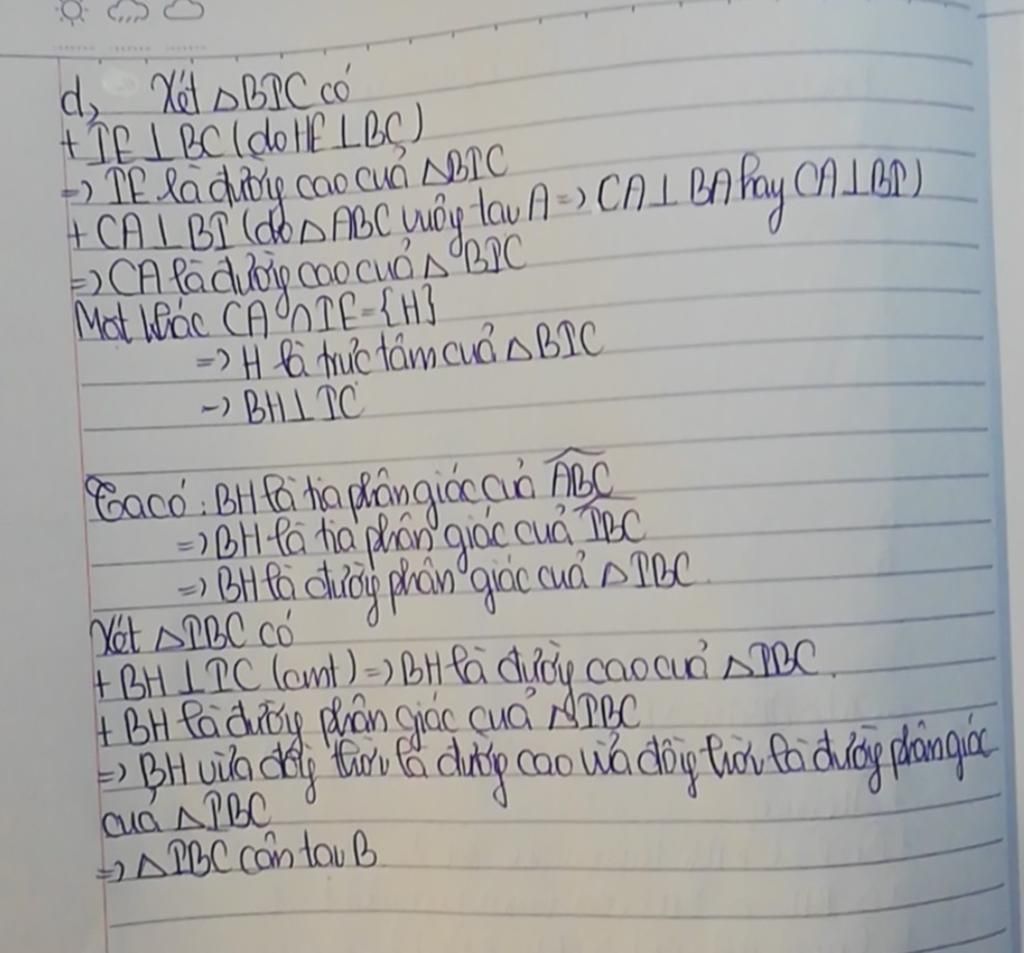 d, Xét △BIC có
+ IE ⊥ BC (do HE ⊥ BC)
=> IE là đường cao của △BIC
+ CA ⊥ BI (do △ABC vuông tại A => CA ⊥ BA hay CA ⊥ BI)
=> CA là đường cao của △BIC
Mặt khác CA ∩ IE = {H}
=> H là trực tâm của △BIC
-> BH ⊥ IC
Ta có: BH là tia phân giác của \widehat{ABC}
=> BH là tia phân giác của \widehat{IBC}
=> BH là đường phân giác của △IBC
Xét △IBC có
+ BH ⊥ IC (cmt) => BH là đường cao của △IBC.
+ BH là đường phân giác của △IBC
=> BH vừa đồng thời là đường cao vừa đồng thời là đường phân giác
của △IBC
=> △IBC cân tại B